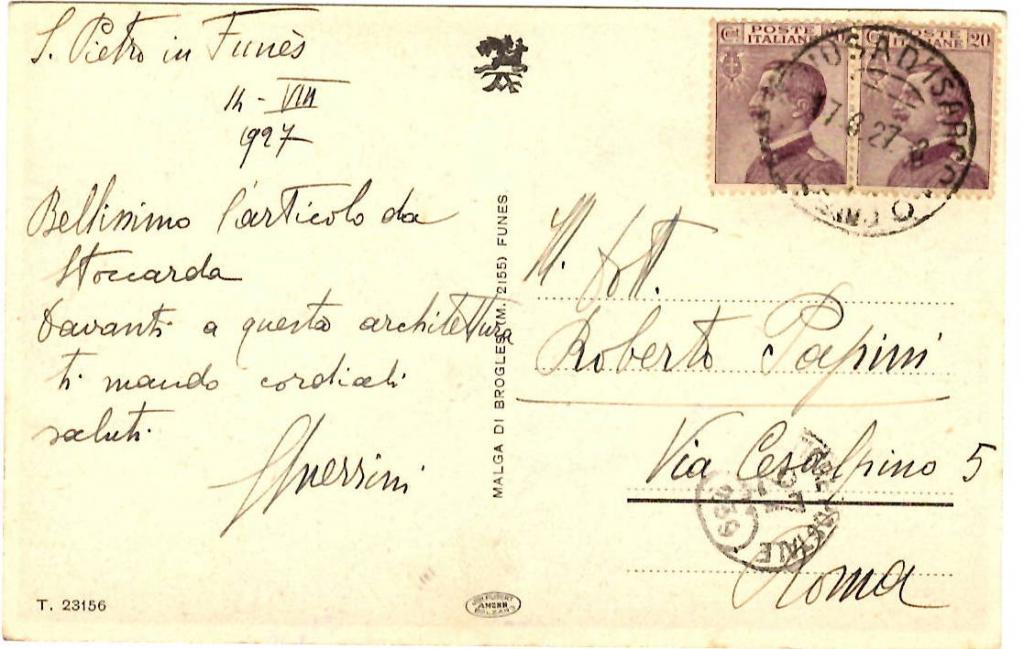 S. Pietro in Funès
14 - VIII
1927
Bellissimo l'articolo da
Stoccarda
Davanti a questa architettura
ti mando cordiali
saluti
Guerrini
T. 23156
MALGA DI BROGLES (M. 2155) FUNES
AMONN
POSTE ITALIANE
POSTE ITALIANE 20
D'ISARCO
7·8·27
All. Dott.
Roberto Papini
Via Cesalpino 5
Roma